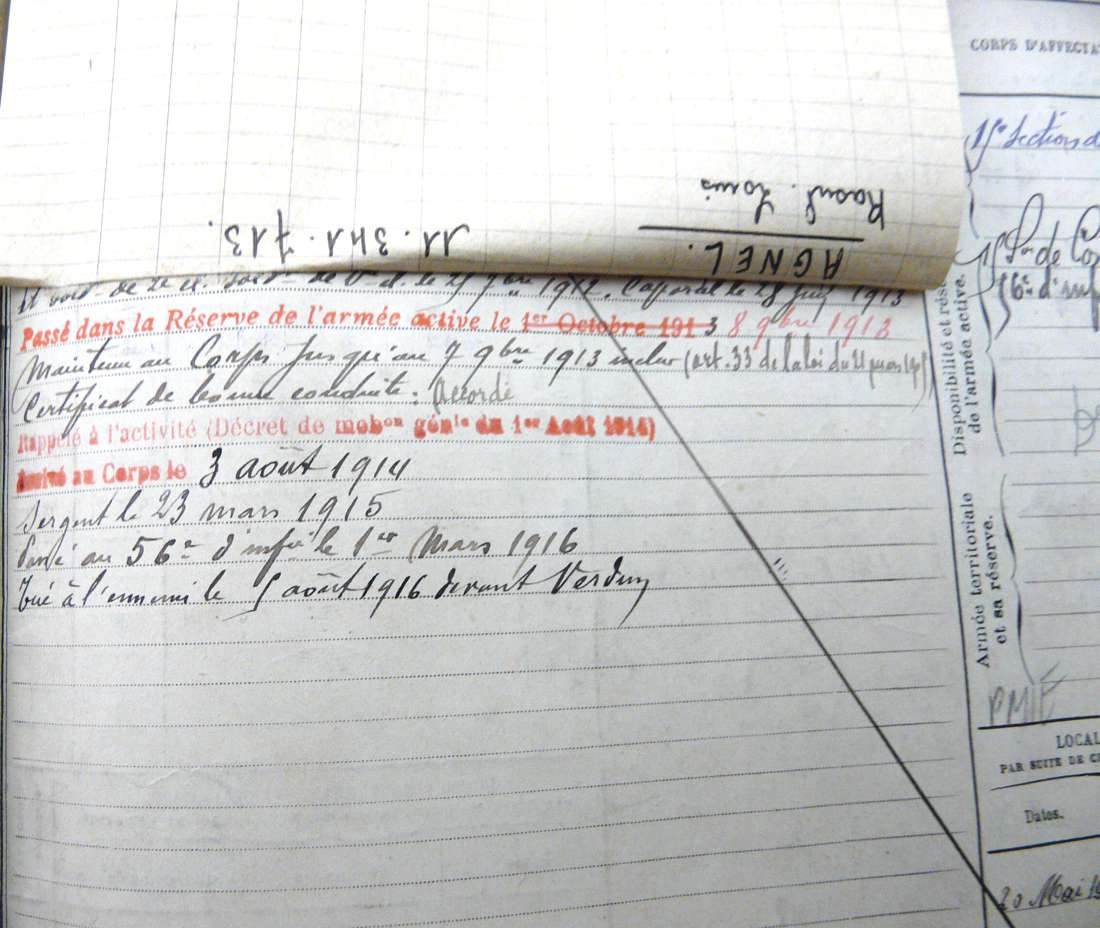 AGNEL.
Raoul. Louis
11. 3H1. 713.
1912. Caporal le 28 1913
Passé dans la Réserve de l'armée active le 1er Octobre 1913 8 9bre 1913
Maintenu au Corps jusqu'au 7 9bre 1913 inclus (art. 33 de la loi du 21 mars 1905)
Certificat de bonne conduite: Accordé
Rappelé à l'activité (Décret de mobon génle du 1er Août 1914)
Arrivé au Corps le 3 août 1914
Sergent le 23 mars 1915
Passé au 56e d'infie le 1er Mars 1916
Tué à l'ennemi le 5 août 1916 devant Verdun
CORPS D'AFFECTA
15e Section d
de
56e d'inf
Disponibilité et rés
de l'armée active.
Armée territoriale
et sa réserve.
LOCAL
PAR SUITE DE C
Dates.
20 Mai 19